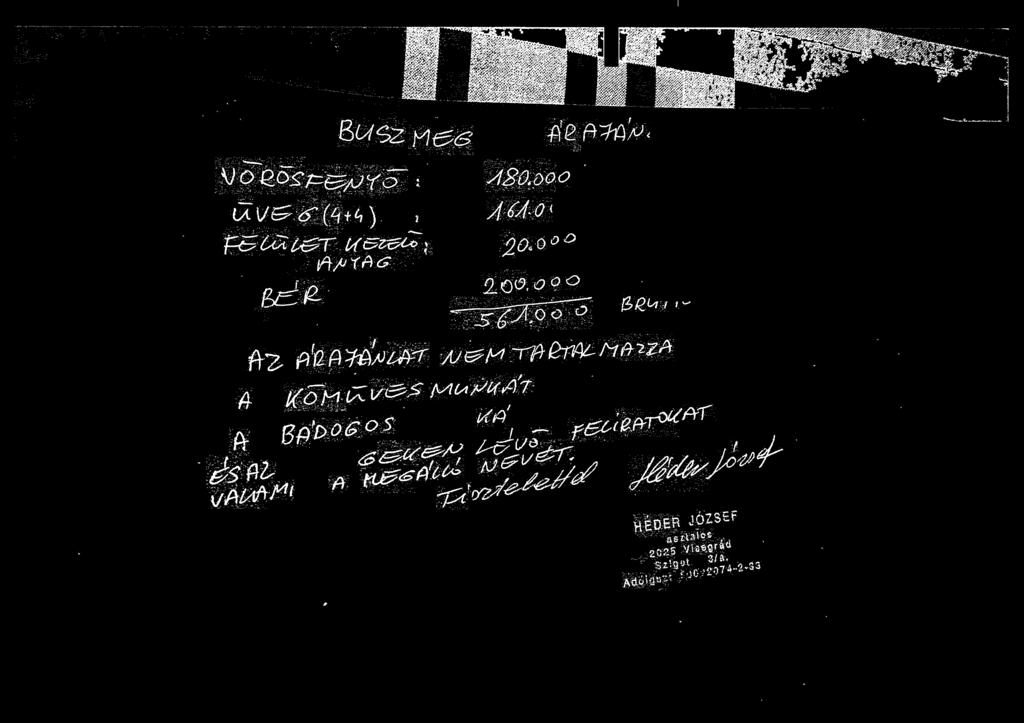 BUSZMEG ÁRAJÁN
VÖRÖSFENYŐ : 180.000
ÜVEG (4+4) : 161.0
FELÜLET KEZELŐ : 20.000
ANYAG
BÉR 200.000
561.000
AZ ÁRAJÁNLAT NEM TARTALMAZZA
A KŐMŰVES MUNKÁT
A BÁDOGOS
ÉS AZ LÉVŐ FELIRATOKAT
VALAMI A MEGÁLLÓ NEVÉT.
Tisztelettel Héder József
HÉDER JÓZSEF
asztalos
2025 Visegrád
Sziget 3/a.